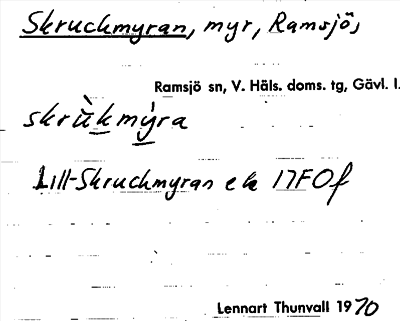 Skruckmyran, myr, Ramsjö,
Ramsjö sn, V. Häls. doms. tg, Gävl. l.
skrùkmýra
Lill-Skruckmyran ek 17F0f
Lennart Thunvall 1970